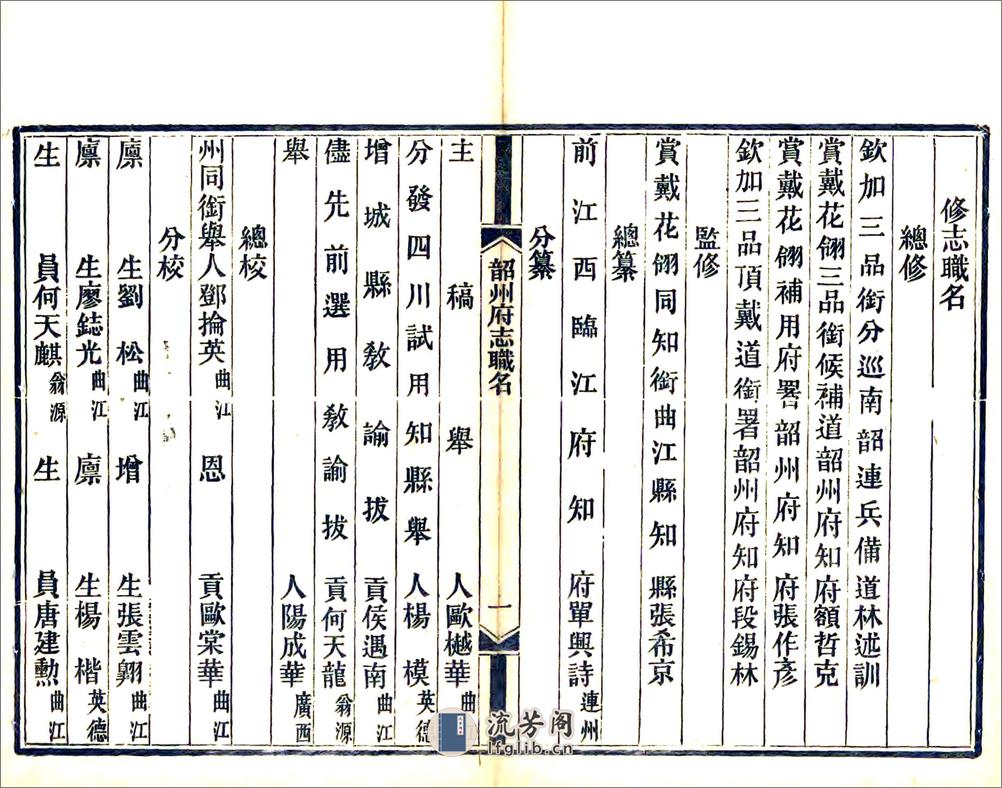 修志職名
總修
欽加三品銜分巡南韶連兵備道林述訓
賞戴花翎三品銜候補道韶州府知府額哲克
賞戴花翎補用府署韶州府知府張作彥
欽加三品頂戴道銜署韶州府知府段錫林
監修
賞戴花翎同知銜曲江縣知縣張希京
總纂
前江西臨江府知府單興詩連州
分纂
韶州府志職名 一
主稿舉人歐樾華曲江
分發四川試用知縣舉人楊模英德
增城縣敎諭拔貢侯遇南曲江
儘先前選用敎諭拔貢何天龍翁源
舉人陽成華廣西
總校
州同銜舉人鄧掄英曲江 恩貢歐棠華曲江
分校
廩生劉松曲江 增生張雲翺曲江
廩生廖鋕光曲江 廩生楊楷英德
生員何天麒翁源 生員唐建勲曲江
流芳阁
lfglib.cn